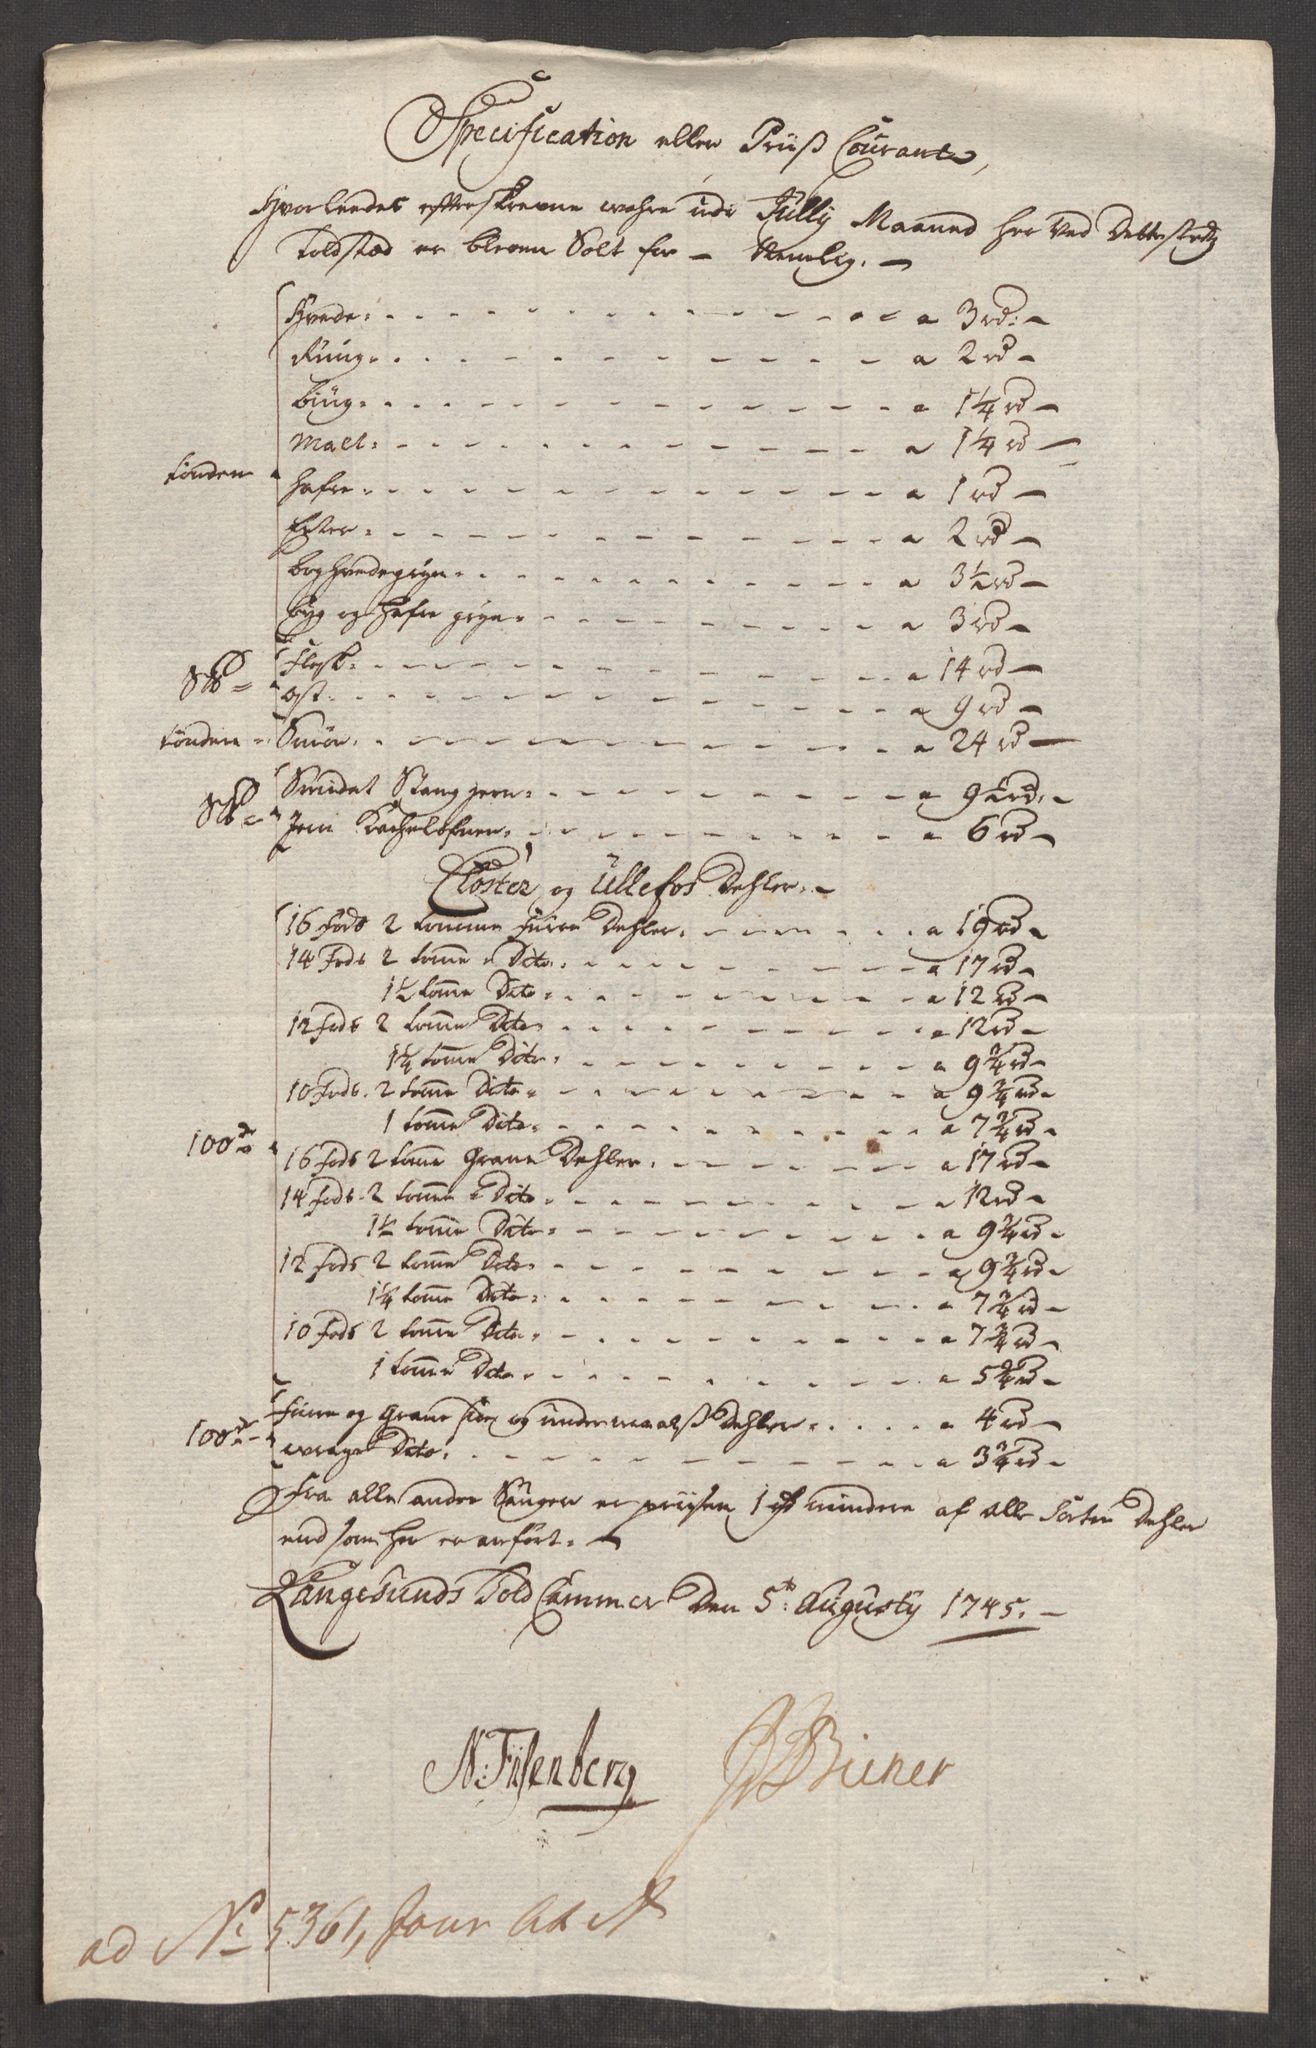 Specification eller Priiß Courant,
Hvorleedes efterskrevne wahre udi Jullij Maaned her Ved Dette stædz
Toldstæd er bleven Solt for - Nemlig. -
Hvede - a 3 rd: -
Rüug - a 2 rd -
Büug - a 1¼ rd -
Malt - a 1¼ rd -
tönden Hafre - a 1 rd -
Erter - a 2 rd -
boghvedegryn - a 3½ rd -
byg og Hafre gryn - a 3 rd -
Flesk - a 14 rd -
S℔ = ost - a 9 rd -
tönden - Smör - a 24 rd -
Smidet Stang Jern - a 9½ rd. -
S℔ = Jern Kachelofner - a 6 rd -
Closter og Ullefos Dehler. -
16 fods 2 tomme Furre Dehler - a 19 rd -
14 Fods 2 tomme Dito - a 17 rd -
1½ tomme Dito - a 12 rd -
12 fods 2 tomme Dito - a 12 rd -
1¼ tomme Dito - a 9¾ rd -
10 Fods 2 tomme Dito - a 9¾ rd -
1 tomme Dito - a 7¾ rd -
100de 16 fods 2 tomme Grane Dehler - a 17 rd -
14 fods 2 tomme Dito - a 12 rd -
1½ tomme Dito - a 9¾ rd -
12 fods 2 tomme Dito - a 9¾ rd -
1¼ tomme Dito - a 7¾ rd -
10 fods 2 tomme Dito - a 7¾ rd -
1 tomme Dito - a 5¾ rd -
Furre og Grane og undermaalß Dehler - a 4 rd -
100de - wrage Dito - a 3¾ rd -
Fra alle andre Sauger er prisen 1 rd mindre af alle Sorter Dehler
end som her er anfört. -
Langesunds Told Cammer Den 5te Augustij 1745. -
N: Fisenberg Biener
ad No 5361, Jour